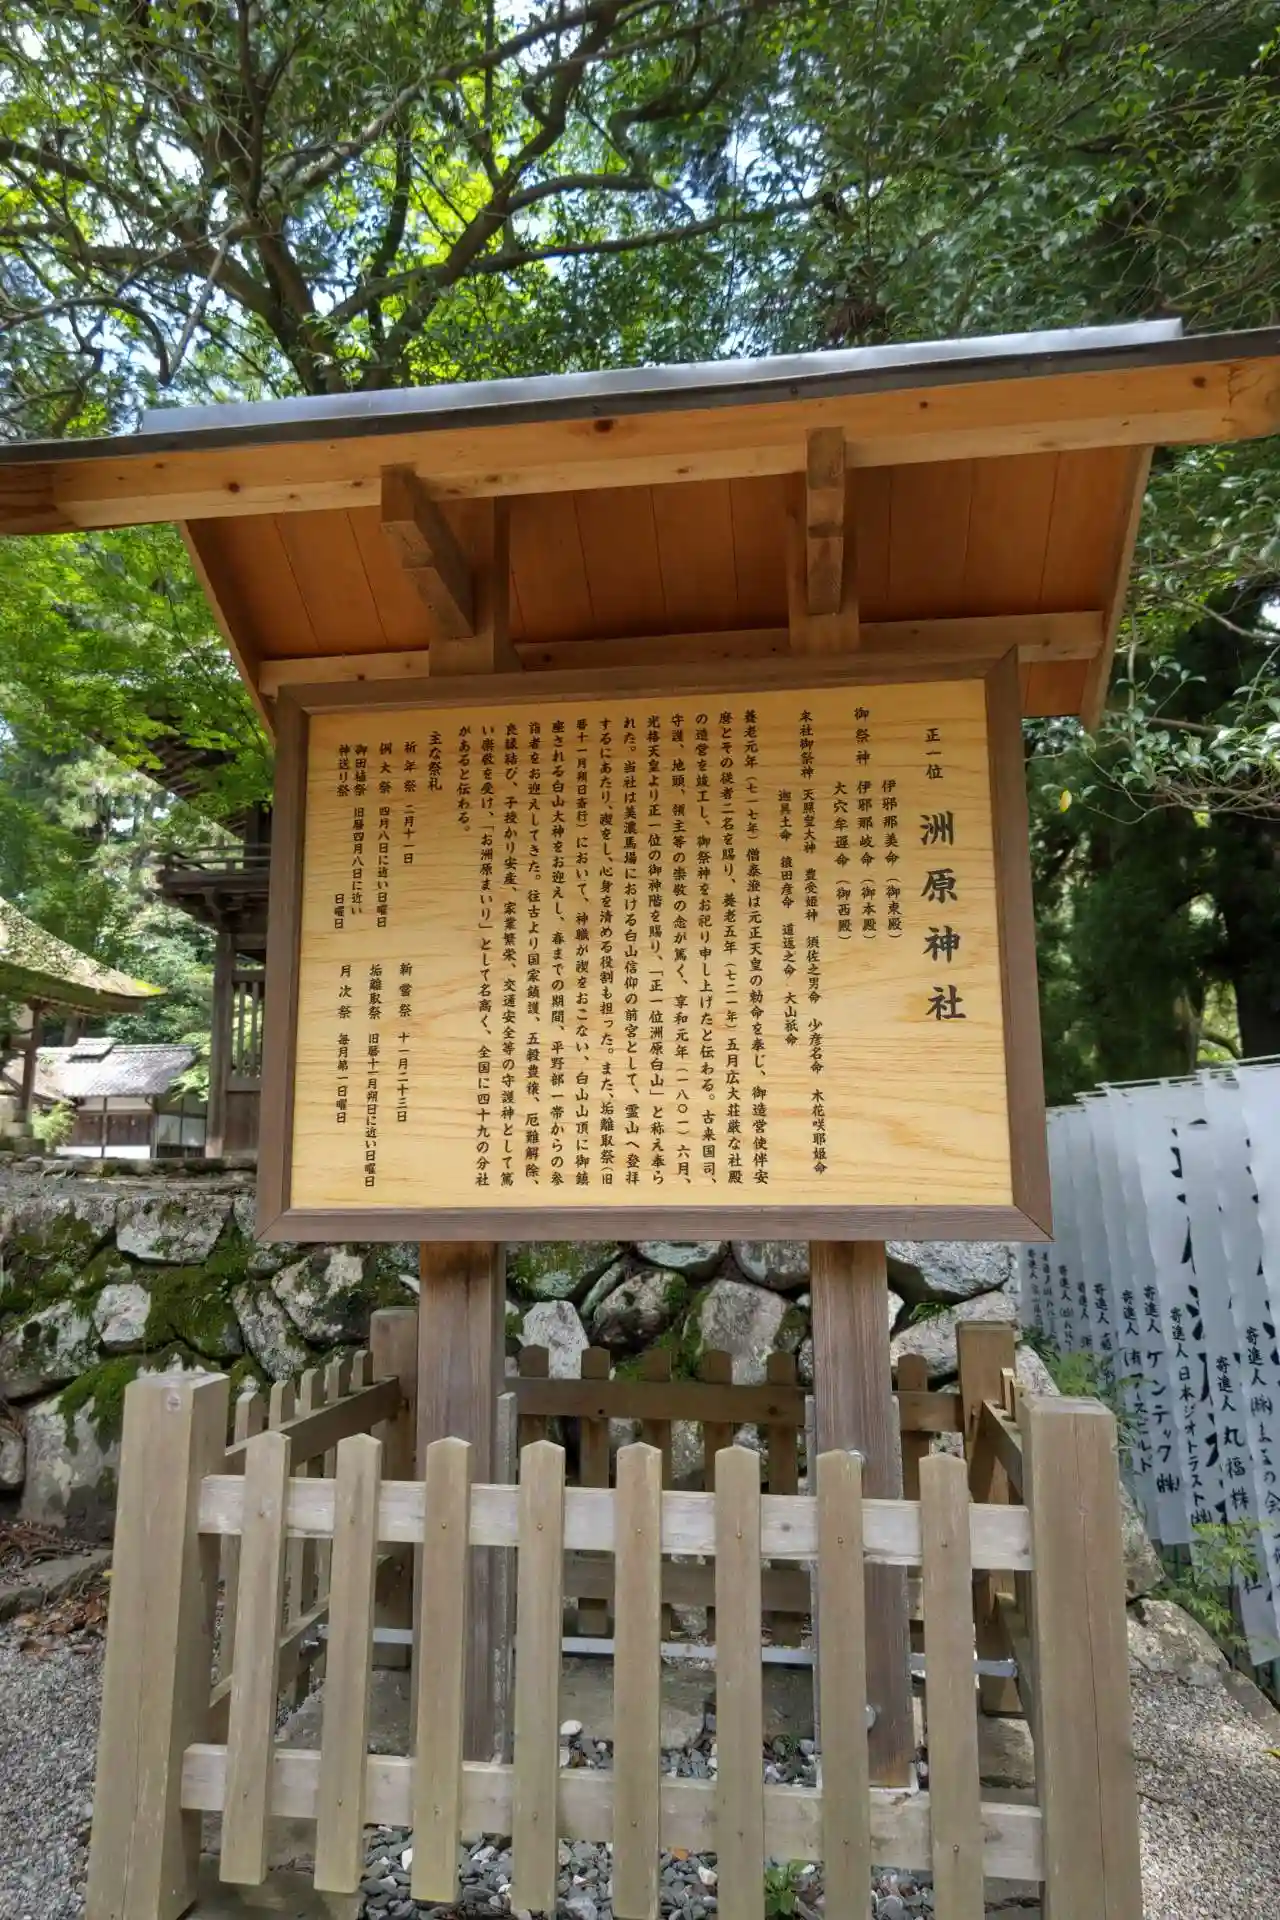 正一位 洲原神社
伊邪那美命（御東殿）
御祭神 伊邪那岐命（御本殿）
大穴牟遅命（御西殿）
末社御祭神 天照皇大神 豊受姫神 須佐之男命 少彦名命 木花咲耶姫命
迦具土命 猿田彦命 道返之命 大山祇命
養老元年（七一七年）僧泰澄は元正天皇の勅命を奉じ、御造営使伴安
麿とその従者二名を賜り、養老五年（七二一年）五月広大荘厳な社殿
の造営を竣工し、御祭神をお祀り申し上げたと伝わる。古来国司、
守護、地頭、領主等の崇敬の念が篤く、享和元年（一八〇一）六月、
光格天皇より正一位の御神階を賜り、「正一位洲原白山」と称え奉ら
れた。当社は美濃馬場における白山信仰の前宮として、霊山へ登拝
するにあたり、禊をし、心身を清める役割も担った。また、垢離取祭（旧
暦十一月朔日斎行）において、神職が禊をおこない、白山山頂に御鎮
座される白山大神をお迎えし、春までの期間、平野部一帯からの参
詣者をお迎えしてきた。往古より国家鎮護、五穀豊穣、厄難解除、
良縁結び、子授かり安産、家業繁栄、交通安全等の守護神として篤
い崇敬を受け、「お洲原まいり」として名高く、全国に四十九の分社
があると伝わる。
主な祭礼
祈年祭 二月十一日
例大祭 四月八日に近い日曜日
御田植祭 旧暦四月八日に近い
神送り祭 日曜日
新嘗祭 十一月二十三日
垢離取祭 旧暦十一月朔日に近い日曜日
月次祭 毎月第一日曜日
寄進人
寄進人 丸福株
寄進人 日本ジオトラスト㈱
寄進人 ケンテック㈱
寄進人 ㈲アースビルド
寄進人
寄進人